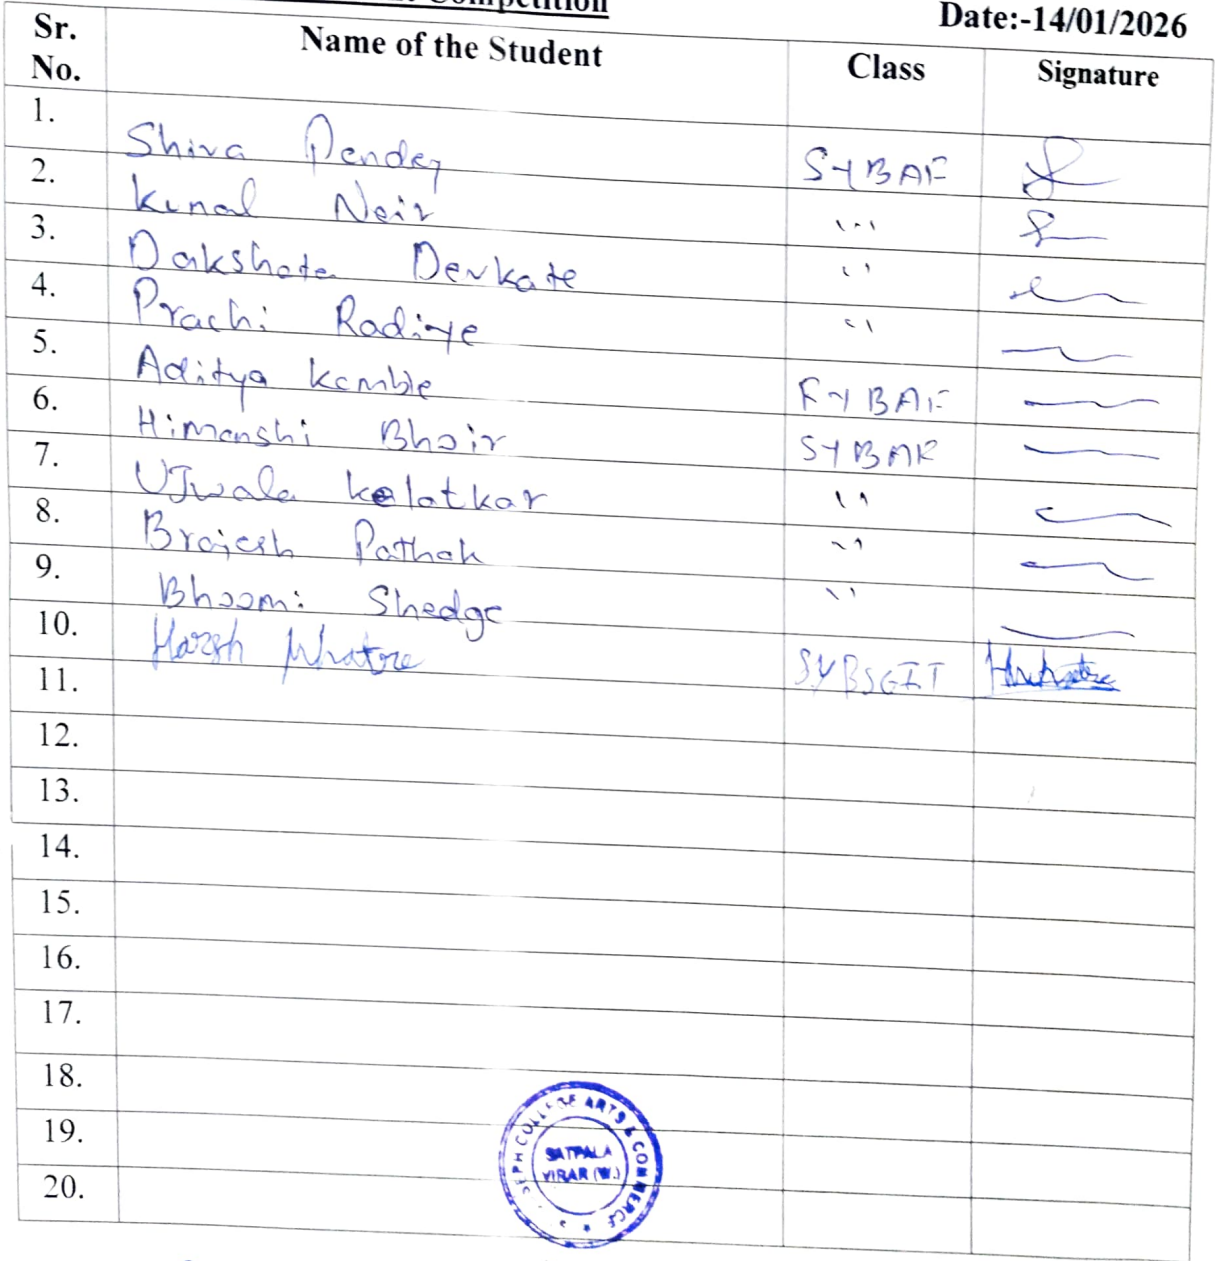 Competition
Date:-14/01/2026
Sr. No. Name of the Student Class Signature
1. Shiva Pandey SYBAF
2. Kunal Nair "
3. Dakshata Devkate "
4. Prachi Radiye "
5. Aditya Kamble FYBAF
6. Himanshi Bhoir SYBAF
7. UJwala kelatkar "
8. Brajesh Pathak "
9. Bhoomi Shedge "
10. Harsh Mhatre SYBSCIT
11.
12.
13.
14.
15.
16.
17.
18.
19.
20.
SEPH COLLEGE OF ARTS & COMMERCE
SATPALA
VIRAR (W.)